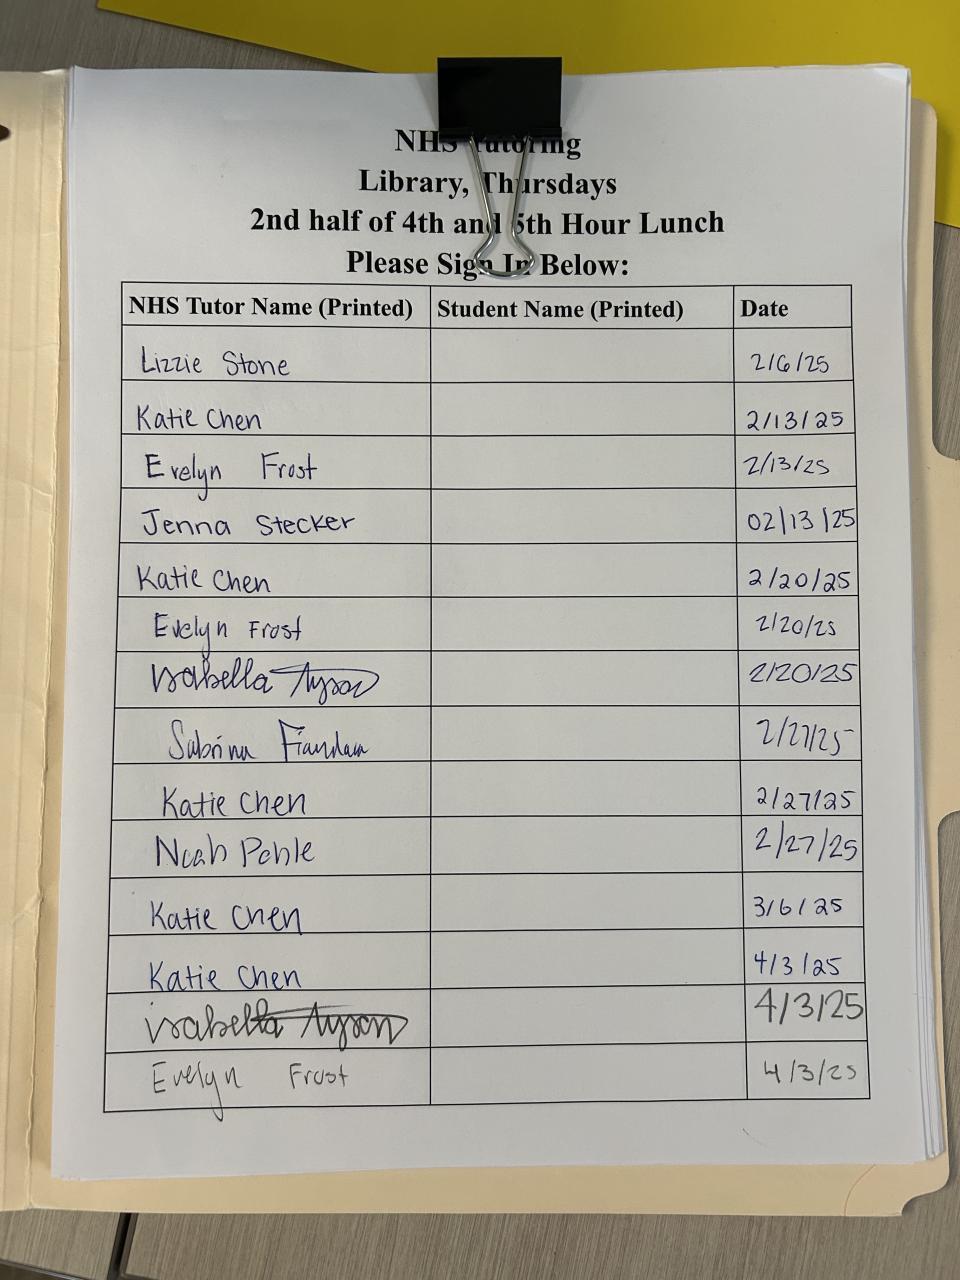 NHS Tutoring
Library, Thursdays
2nd half of 4th and 5th Hour Lunch
Please Sign In Below:
NHS Tutor Name (Printed) Student Name (Printed) Date
Lizzie Stone 2/6/25
Katie Chen 2/13/25
Evelyn Frost 2/13/25
Jenna Stecker 02/13/25
Katie Chen 2/20/25
Evelyn Frost 2/20/25
Isabella Tyson 2/20/25
Sabrina 2/27/25
Katie Chen 2/27/25
Noah Pohle 2/27/25
Katie Chen 3/6/25
Katie Chen 4/3/25
isabella tyson 4/3/25
Evelyn Frost 4/3/25